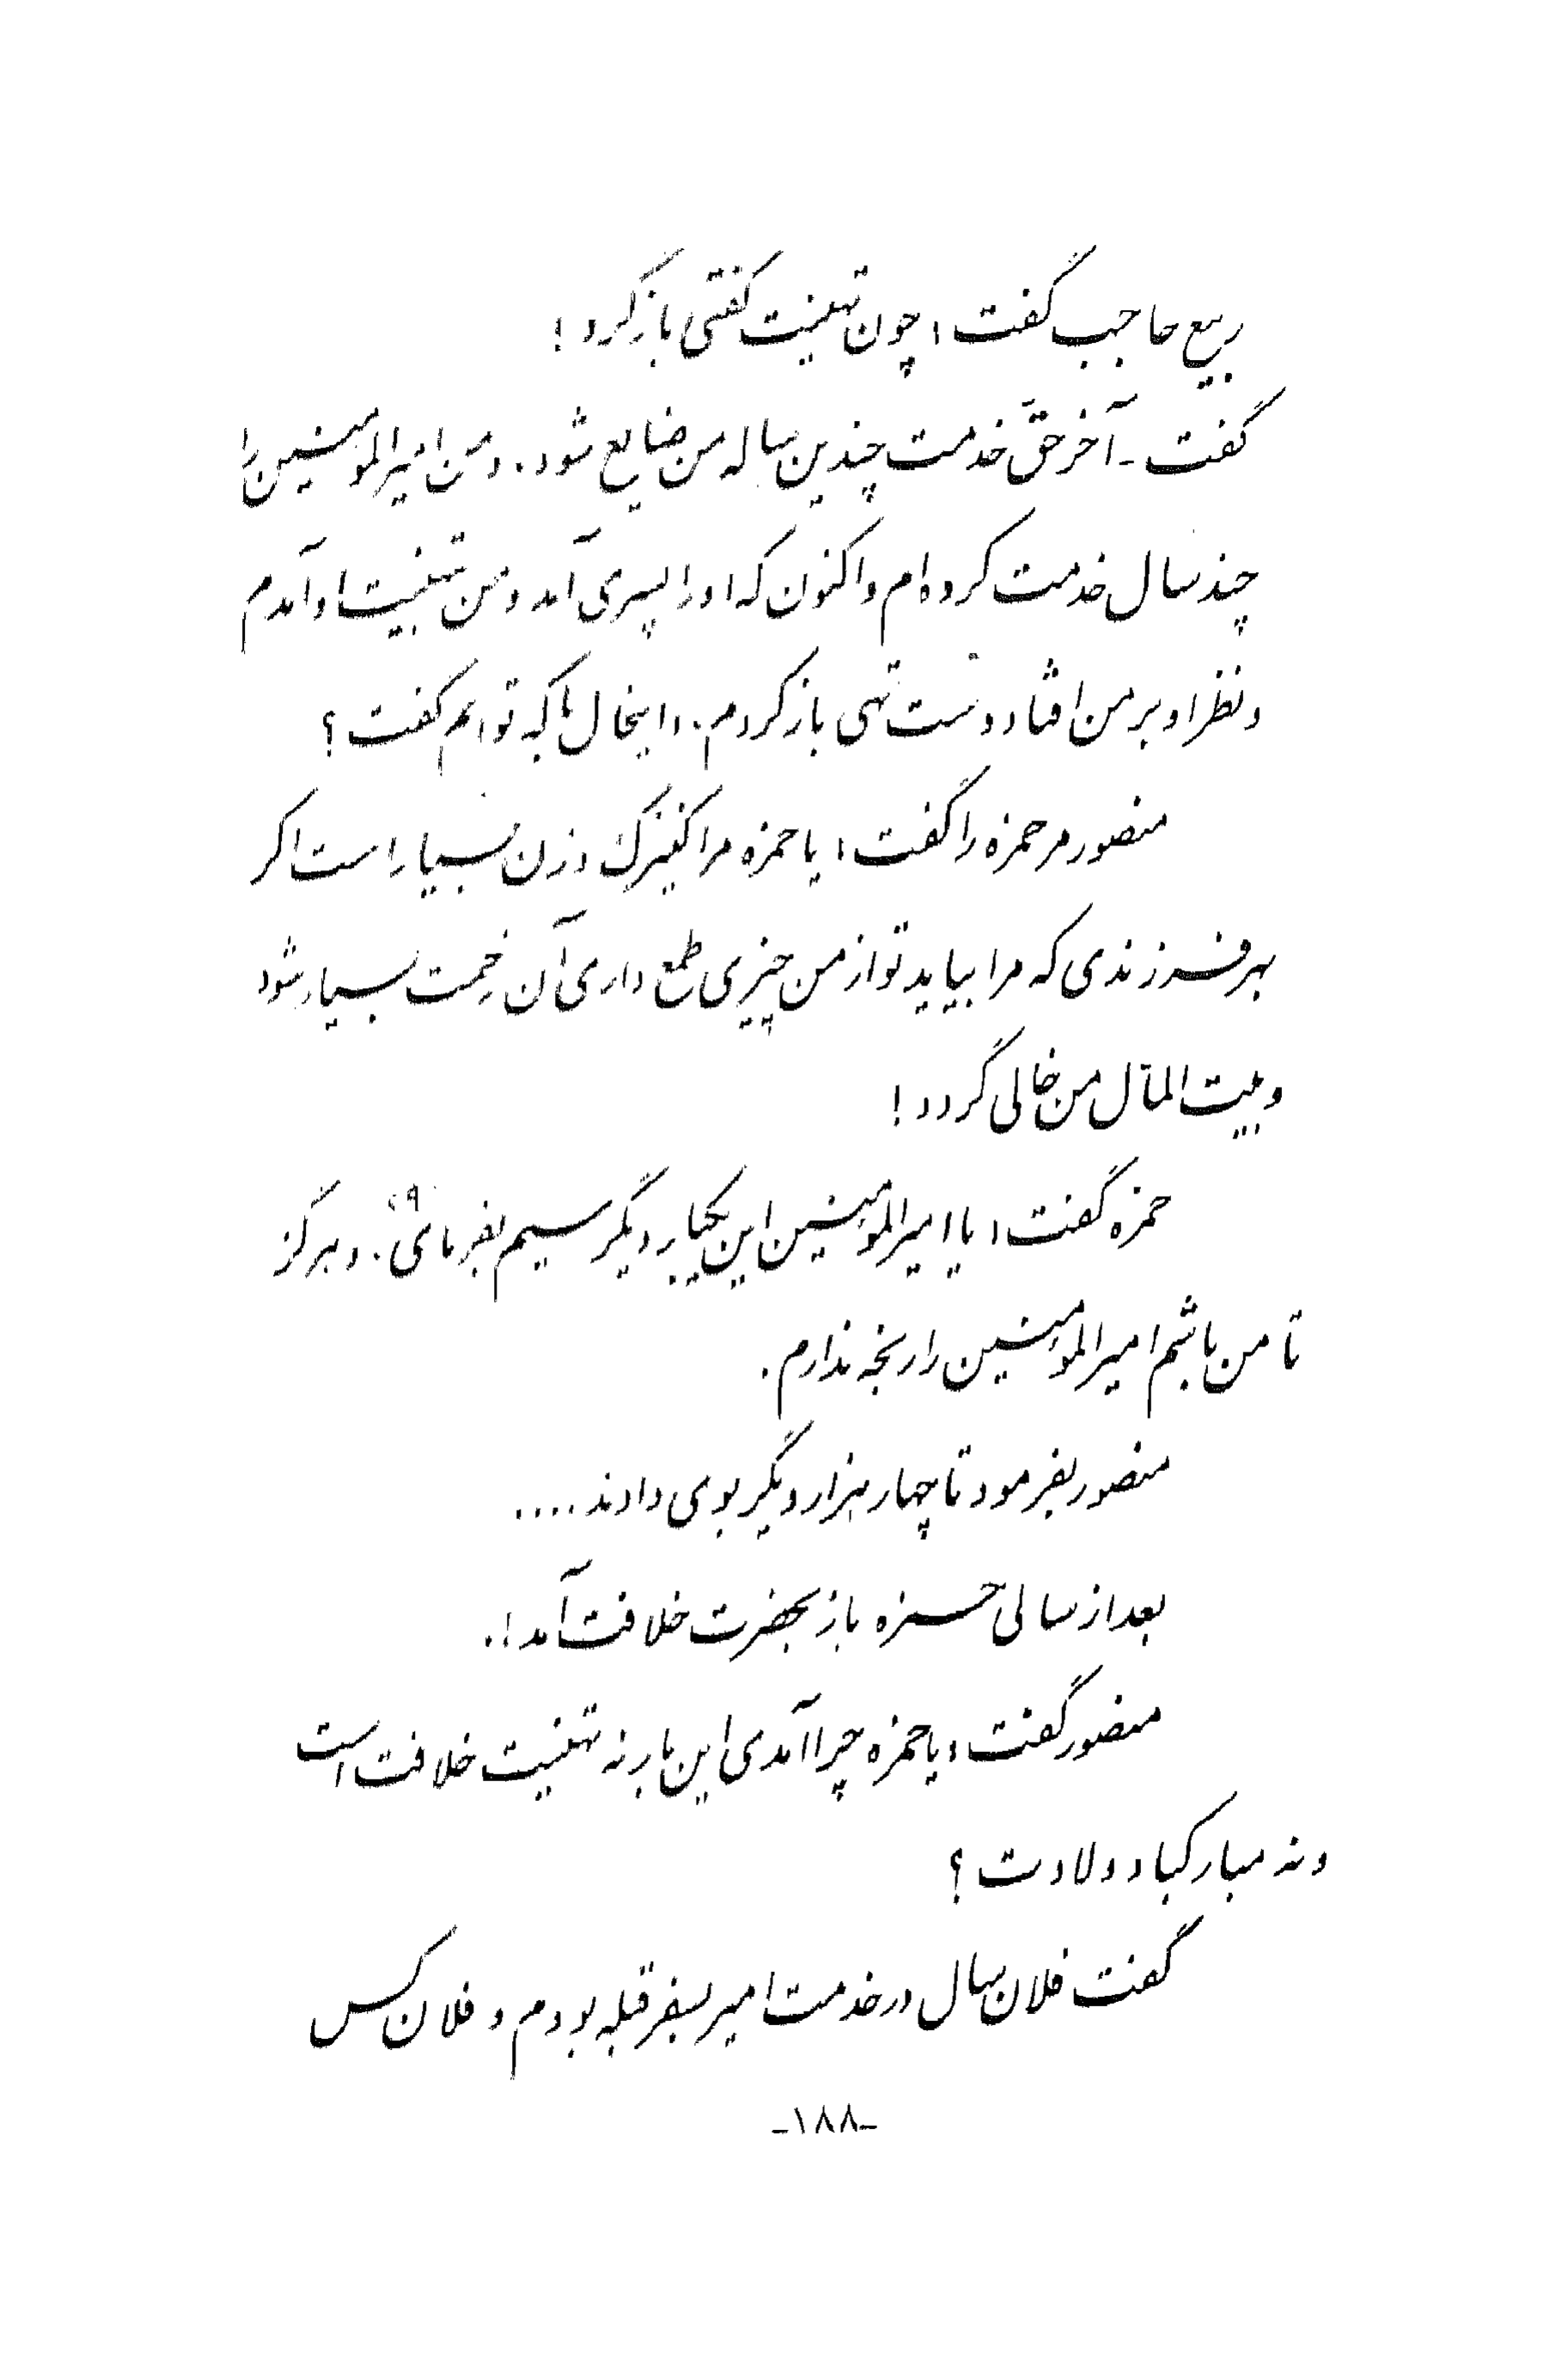 ربیع حاجب گفت: چون تهنیت گفتی بازگرد!
گفت ـ آخر حقّ خدمت چندین ساله من ضایع شود. و من امیرالمؤمنین را
چند سال خدمت کرده ام و اکنون که او را پسری آمد و من تهنیت او آمدم
و نظر او بر من افتاد دست تهی بازگردم. اینحال با که توانم گفت؟
منصور مر حمزه را گفت: یا حمزه مرا کنیزک و زن بسیار است اگر
بهر فرزندی که مرا بیاید تو از من چیزی طمع داری آن زحمت بسیار شود
و بیت المال من خالی گردد!
حمزه گفت: یا امیرالمؤمنین این یکبار دیگر سیم بفرمای ۹. و هرگز
تا من باشم امیرالمؤمنین را رنجه ندارم.
منصور بفرمود تا چهار هزار دیگر بوی دادند....
بعد از سالی حمزه باز بحضرت خلافت آمد!.
منصور گفت: یا حمزه چرا آمدی این بار نه تهنیت خلافت است
و نه مبارکباد ولادت؟
گفت فلان سال در خدمت امیر بسفر قبله بودم و فلان کس
ـ۱۸۸ـ